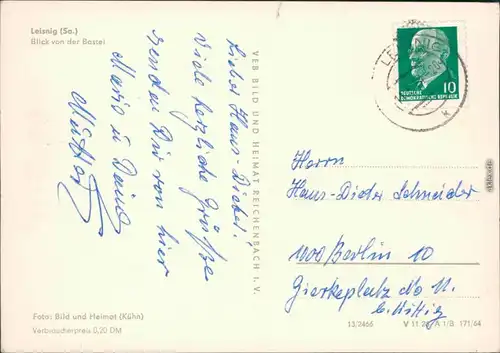 Leisnig (Sa.)
Blick von der Bastei
Lieber Hans-Dieter!
Viele herzliche Grüße
senden Dir von hier
Mario u David
Mutter
VEB BILD UND HEIMAT REICHENBACH I. V.
LEISNIG
10
DEUTSCHE
DEMOKRATISCHE REPUBLIK
Herrn
Hans-Dieter Schneider
1000 Berlin 10
Gierkeplatz No 11.
b.
Foto: Bild und Heimat (Kühn)
Verbraucherpreis 0,20 DM
13/2466 V 11 28 A 1/B 171/64